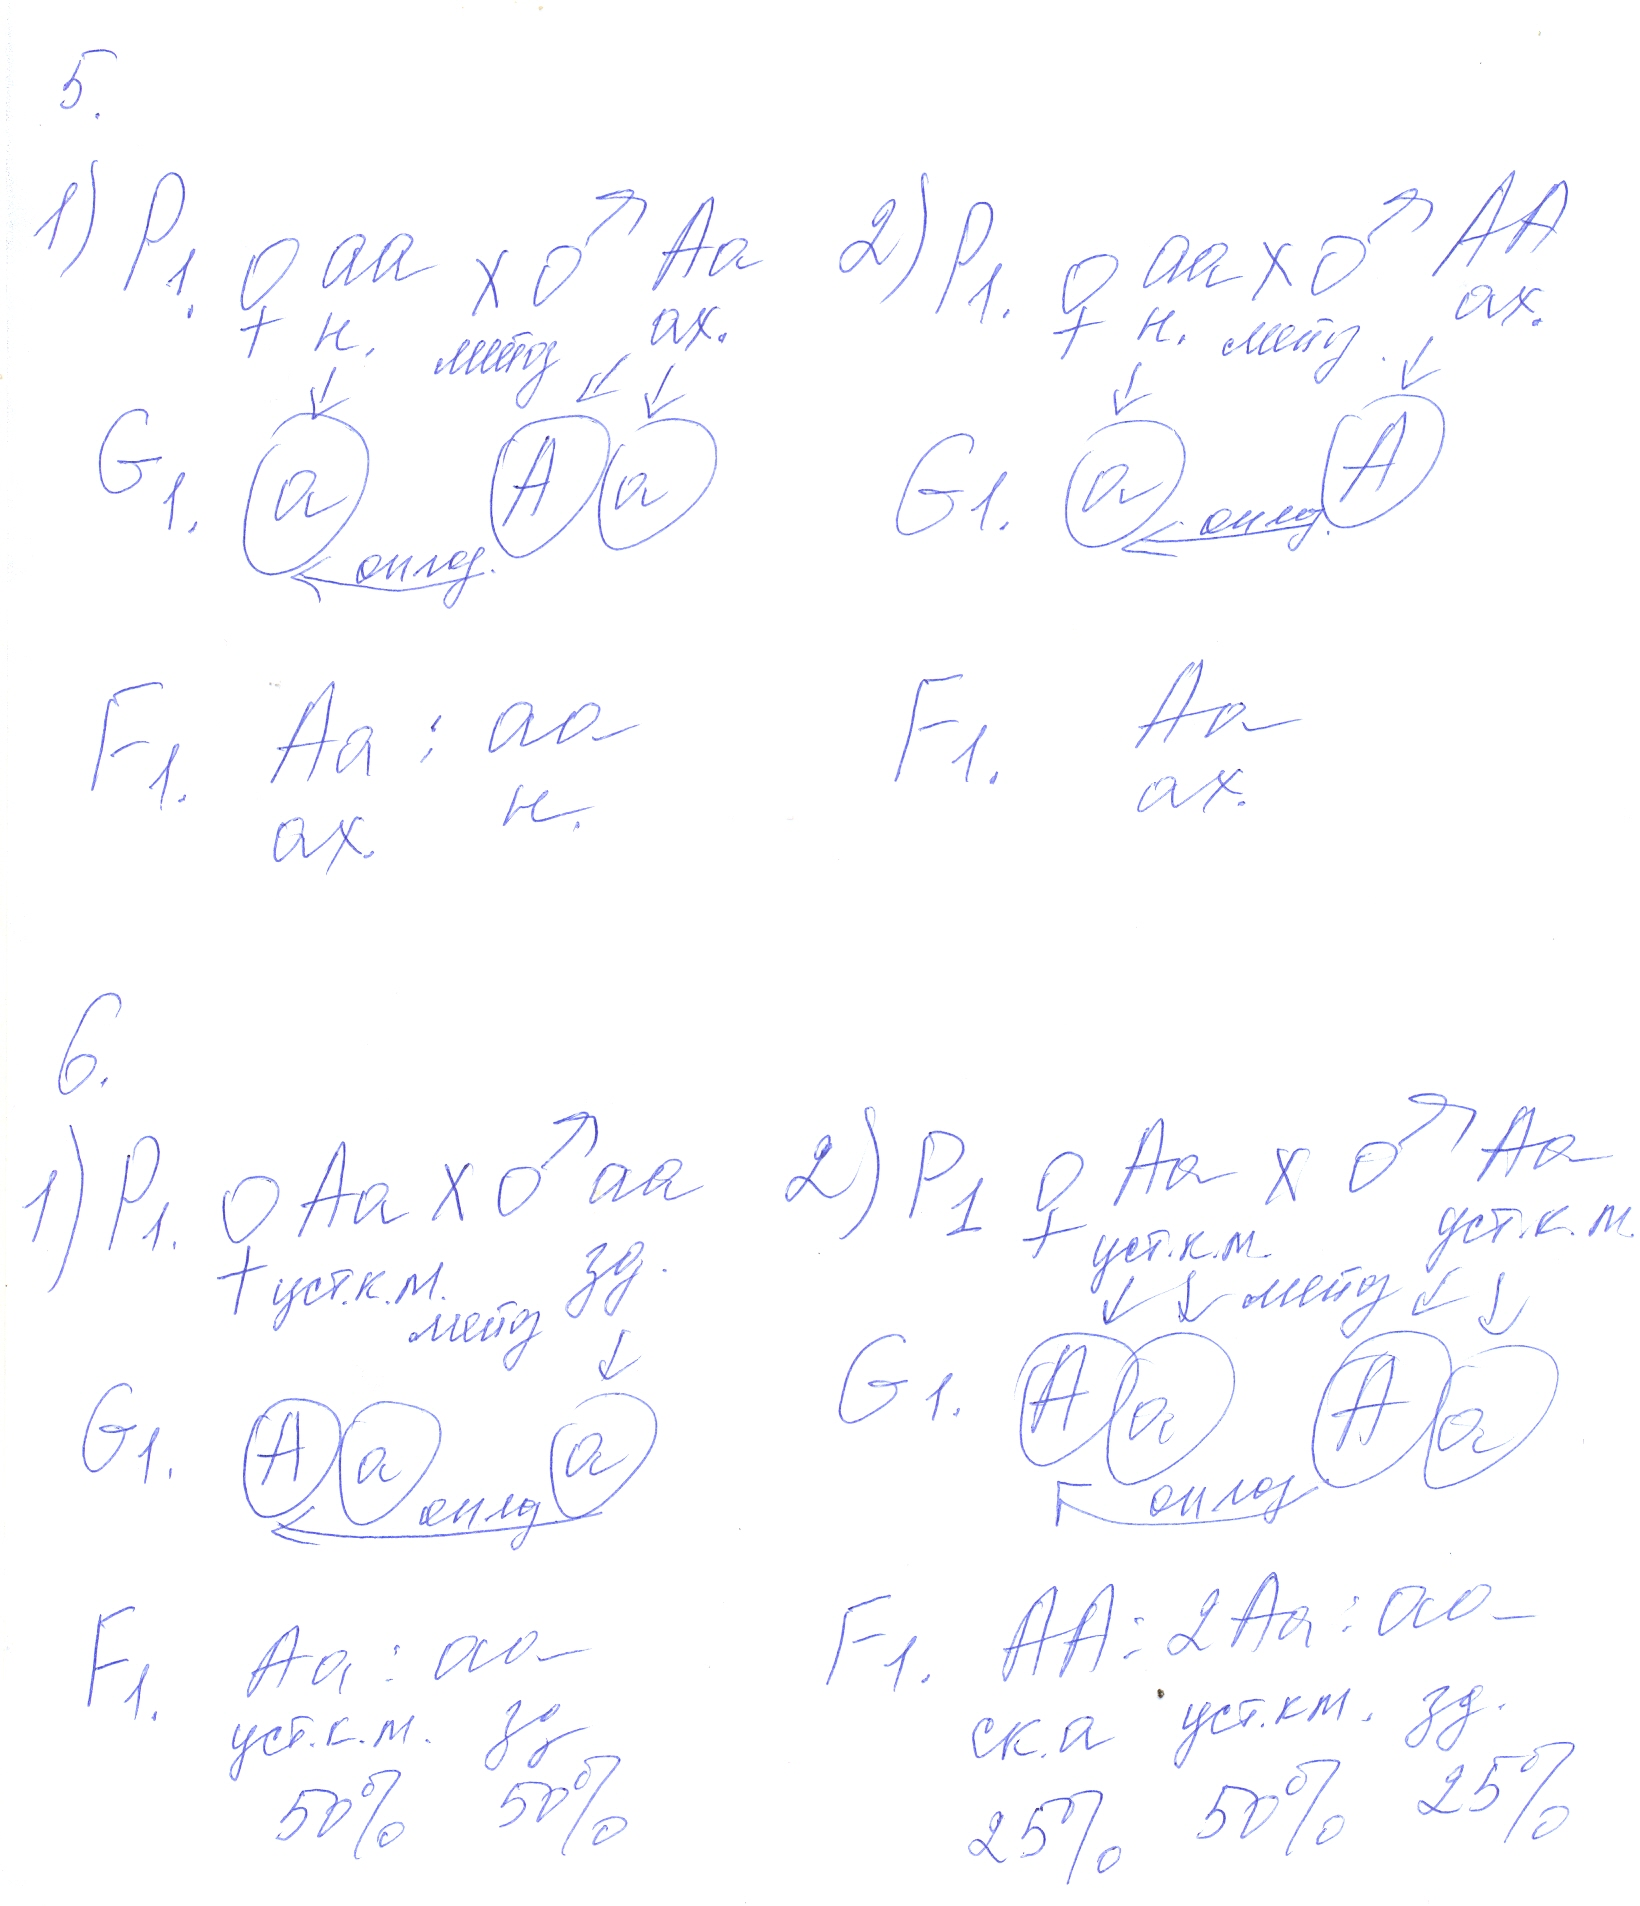 5.
1) P1. ♀ aa x ♂ Aa
н. мейоз ах.
G1. a A a
оплод.
F1. Aa : aa
ах. н.
2) P1. ♀ aa x ♂ AA
н. мейоз. ах.
G1. a A
оплод.
F1. Aa
ах.
6.
1) P1. ♀ Aa x ♂ aa
уст.к.м. зд.
мейоз
G1. A a a
оплод
F1. Aa : aa
уст.к.м. зд
50% 50%
2) P1 ♀ Aa x ♂ Aa
уст.к.м. уст.к.м.
мейоз
G1. A a A a
оплод
F1. AA : 2Aa : aa
ск.а уст.км. зд.
25% 50% 25%